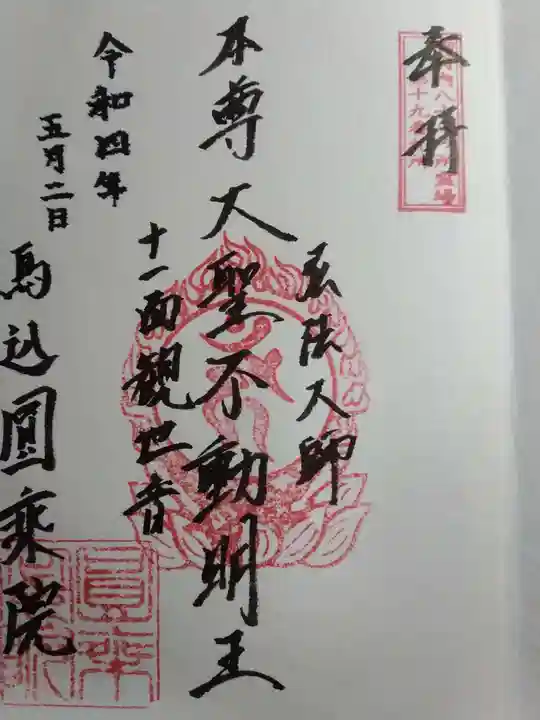 奉拝
弘法大師
本尊 大聖不動明王
十一面観世音
令和四年
五月二日
馬込圓乗院